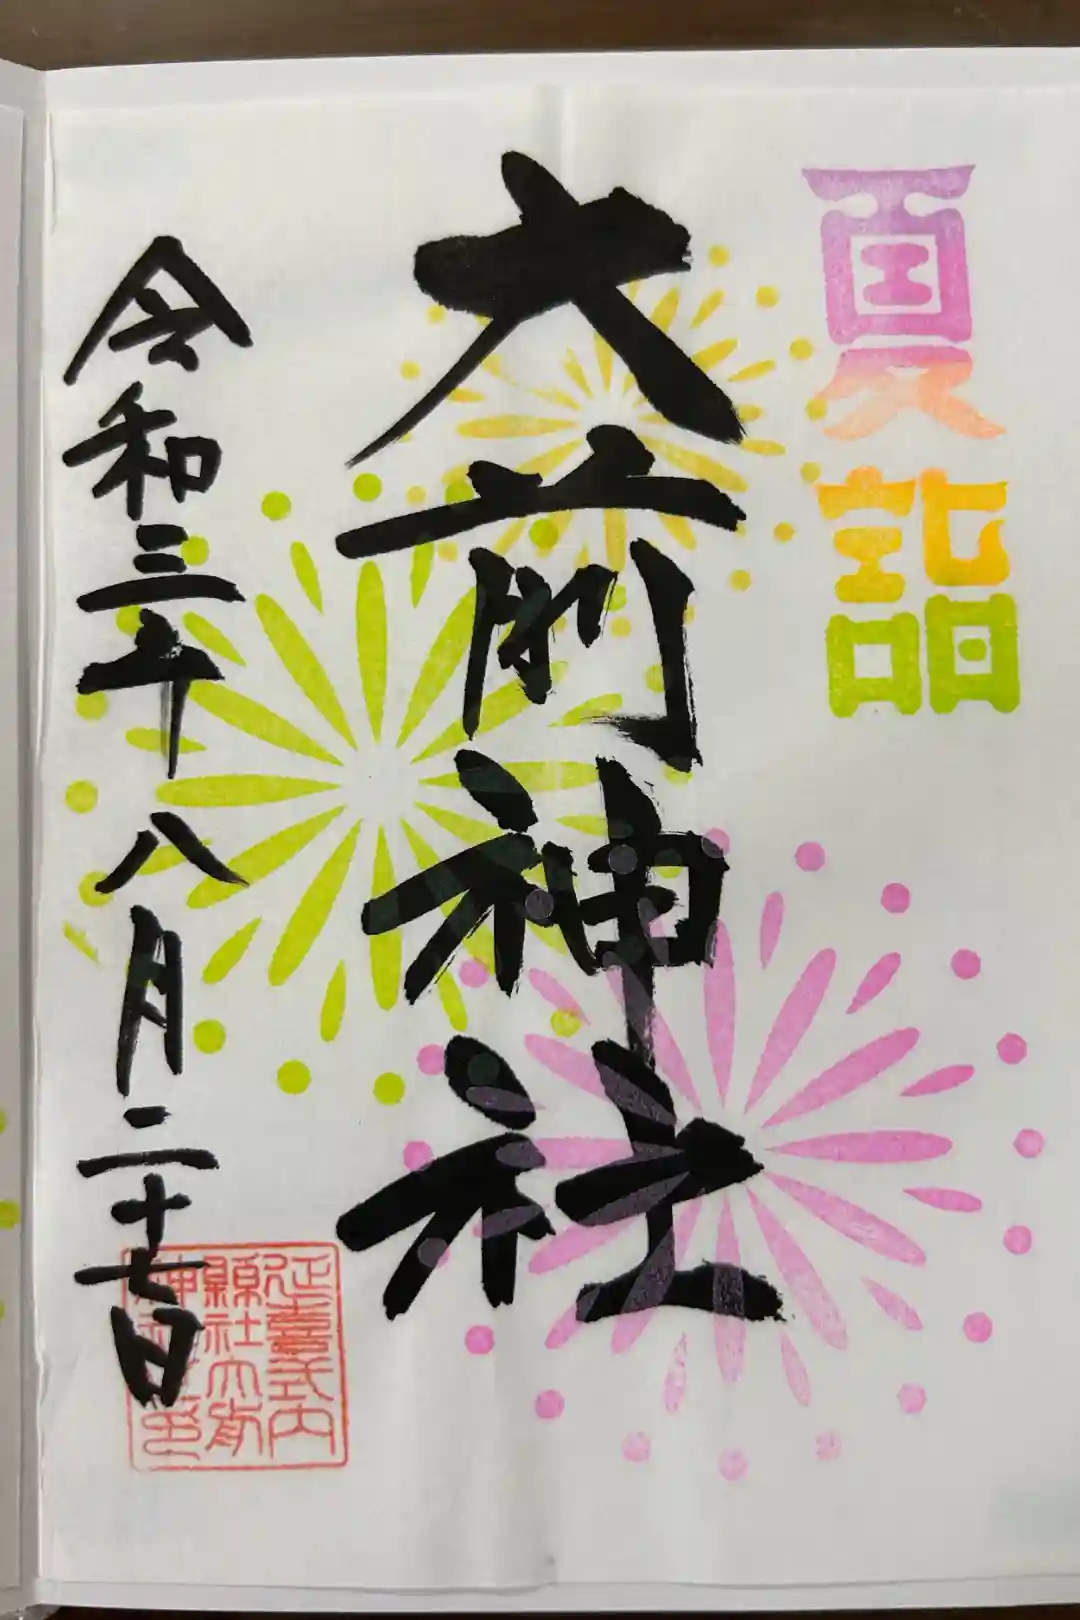 夏詣
大前神社
令和三年八月二十七日
延喜式内
縣社大前
神社
印